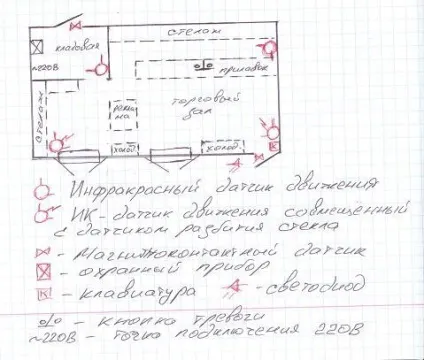 стелаж
кладовая
~220В
прилавок
торговый
зал
рекла
ма
стелаж
холод.
холод.
Инфракрасный датчик движения
ИК-датчик движения совмещенный
с датчиком разбития стекла
- Магнитоконтактный датчик
- охранный прибор
К - клавиатура - светодиод
- кнопка тревоги
~220В - точка подключения 220В